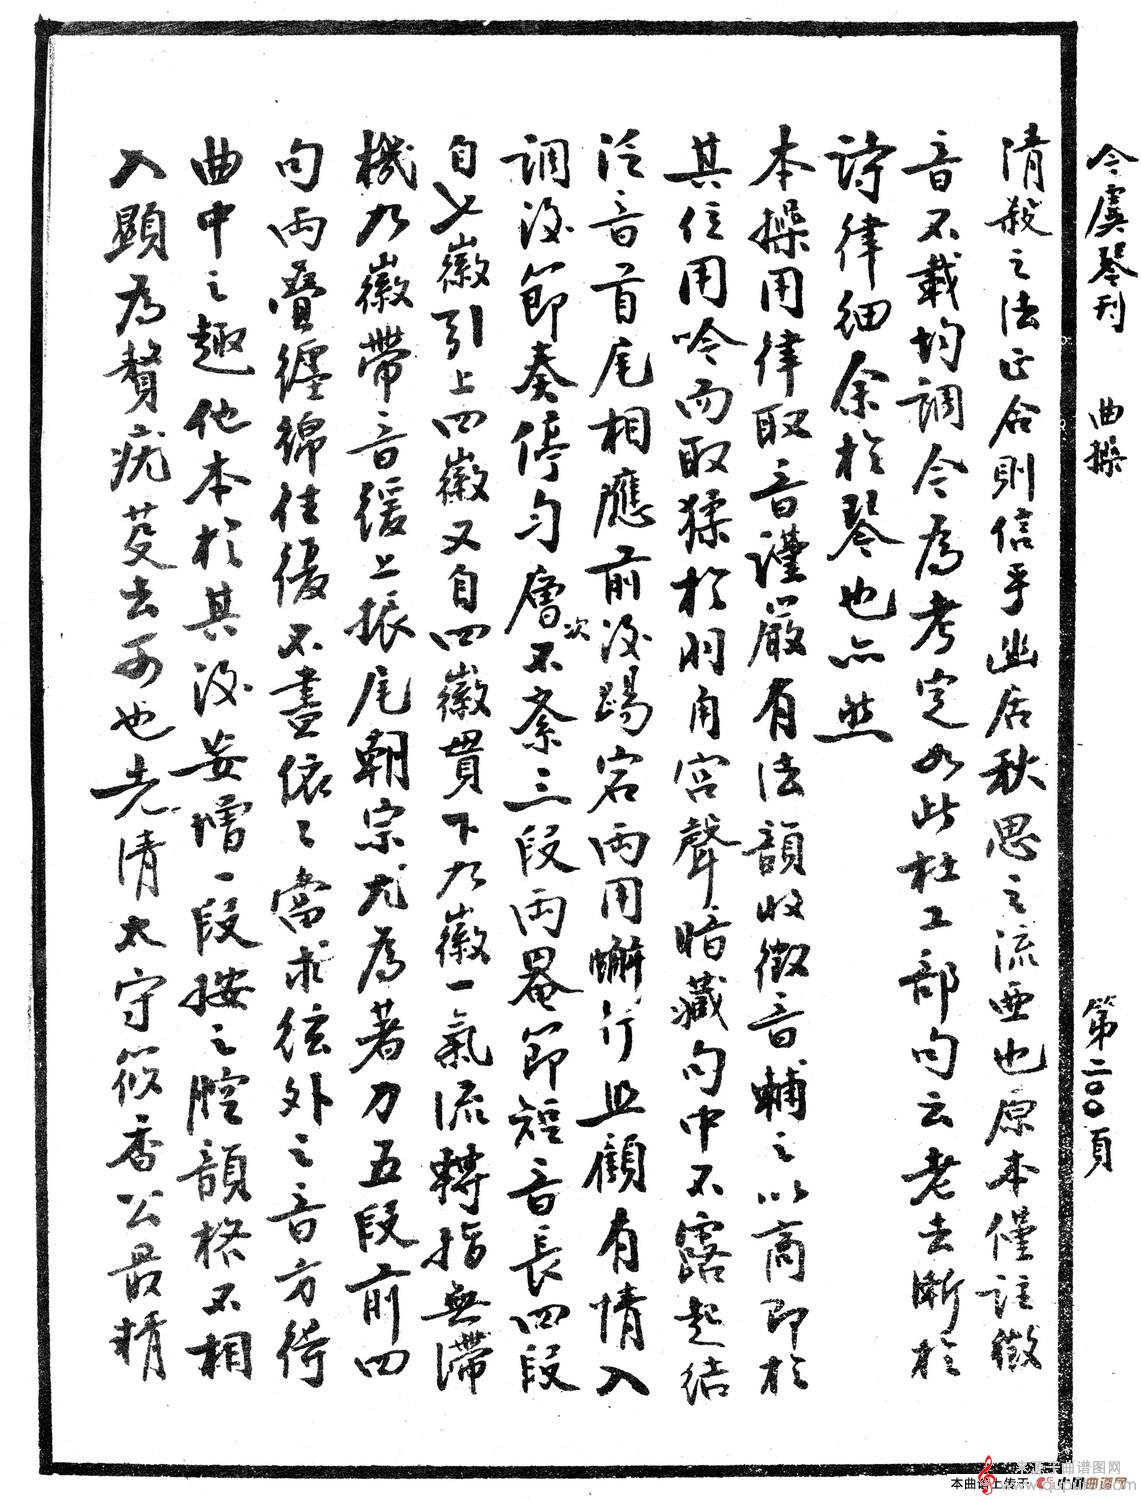 今虞琴刊　曲操　第二〇〇頁
清殺之法正合則信乎幽居秋思之流亞也原本僅註徵
音不載均調今為考定如此杜工部句云老去漸於
詩律細余於琴也亦然
本操用律取音謹嚴有法韻收徵音輔之以商即於
其位用吟而取猱於羽角宮聲暗藏句中不露起結
泛音首尾相應前後踢宕兩用蠏行且顧有情入
調後節奏停勻層次不紊三段兩罨節短音長四段
自七徽引上四徽又自四徽貫下九徽一氣流轉指無滯
機九徽帶音緩上振尾朝宗尤為著力五段前四
句兩疊纏綿往復不盡依〻當求絃外之音方得
曲中之趣他本於其後妄增一段按之腔韻格不相
入顯為贅疣芟去可也先清太守筱香公最精
本曲谱上传于 中国曲谱网